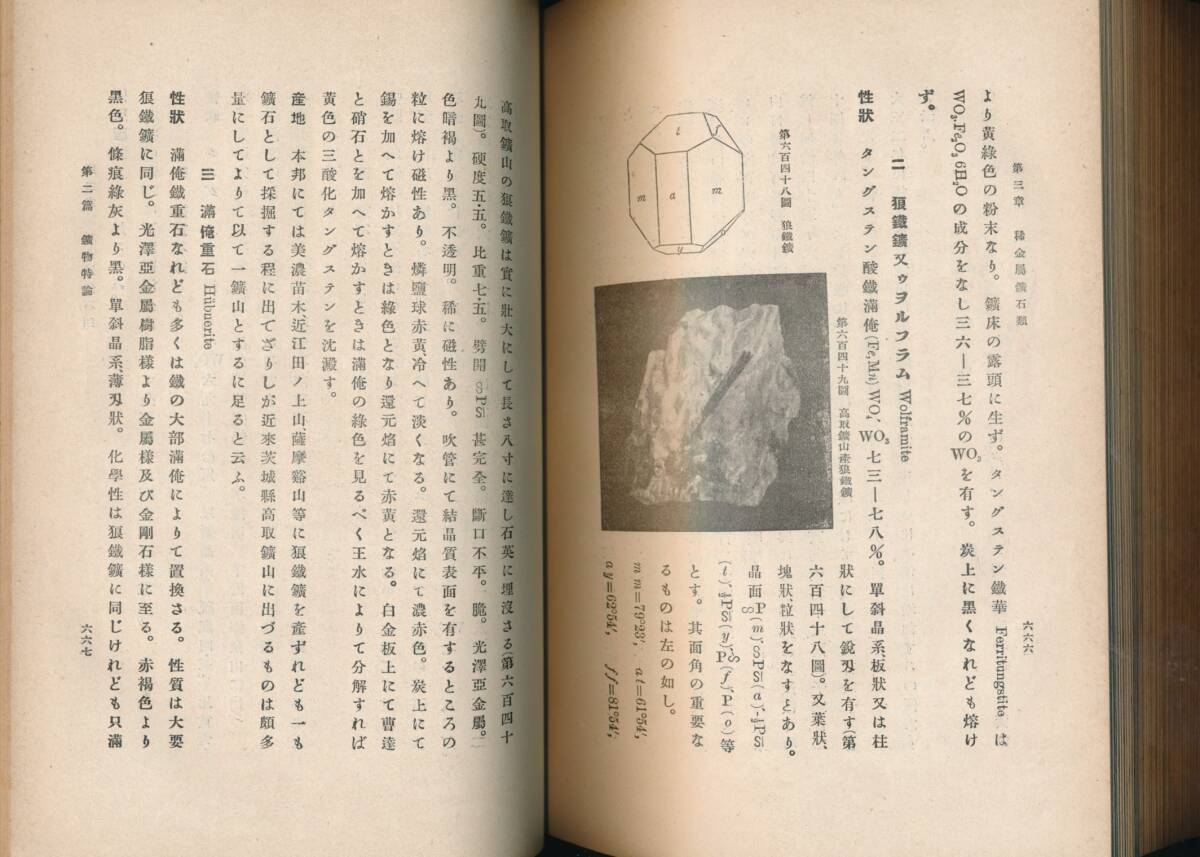 第三章 稀金屬鑛石類
六六六
より黃綠色の粉末なり。鑛床の露頭に生ず。タングステン鐵華 Ferritungstite は
WO₃.Fe₂O₃6H₂O の成分をなし三六—三七%の WO₃ を有す。炭上に黑くなれども熔け
ず。
二 狼鐵鑛又ヮヲルフラム Wolframite
性狀 タングステン酸鐵滿俺(Fe,Mn)WO₄、WO₃七三—七八%。單斜晶系、板狀又は柱
狀にして銳刄を有す(第
六百四十八圖)。又葉狀、
塊狀、粒狀をなすとあり。
晶面
とす。其面角の重要な
るものは左の如し。
mm=79°23′, at=61°54′,
ay=62°54′, ff=81°54′,
第六百四十八圖 狼鐵鑛
l
f
m
a
m
y
第六百四十九圖 高取鑛山產狼鐵鑛
高取鑛山の狼鐵鑛は實に壯大にして長さ八寸に達し石英に埋沒さる(第六百四十
九圖)。硬度五·五。比重七·五。劈開 ∞P∞ 甚完全。斷口不平。脆。光澤亞金屬。
色暗褐より黑。不透明。稀に磁性あり。吹管にて結晶質表面を有するところの
粒に熔け磁性あり。燐鹽球赤黃、冷へて淡くなる。還元焰にて濃赤色。炭上にて
錫を加へて熔かすときは綠色となり還元焰にて赤黃となる。白金板上にて曹達
と硝石とを加へて熔かすときは滿俺の綠色を見るべく王水によりて分解すれば
黃色の三酸化タングステンを沈澱す。
產地 本邦にては美濃苗木近江田ノ上山薩摩谿山等に狼鐵鑛を產ずれども一も
鑛石として採掘する程に出でざりしが近來茨城縣高取鑛山に出づるものは頗多
量にしてよりて以て一鑛山とするに足ると云ふ。
三 滿俺重石 Hübnerite
性狀 滿俺鐵重石なれども多くは鐵の大部滿俺によりて置換さる。性質は大要
狼鐵鑛に同じ。光澤亞金屬樹脂樣より金屬樣及び金剛石樣に至る。赤褐色より
黑色。條痕綠灰より黑。單斜晶系、薄刄狀。化學性は狼鐵鑛に同じけれども只滿
第二篇 鑛物特論
六六七